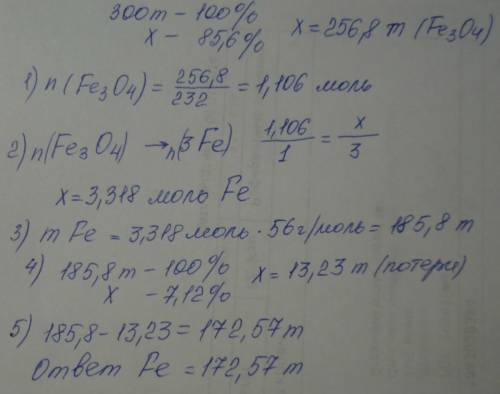 300т – 100%
х – 85,6% х = 256,8 т (Fe₃O₄)
1) n (Fe₃O₄) = 256,8/232 = 1,106 моль
2) n(Fe₃O₄) → n(3Fe) 1,106/1 = х/3
х = 3,318 моль Fe
3) m Fe = 3,318 моль · 56г/моль = 185,8 т
4) 185,8т – 100% х = 13,23 т (потери)
х – 7,12%
5) 185,8 – 13,23 = 172,57т
Ответ Fe = 172,57т